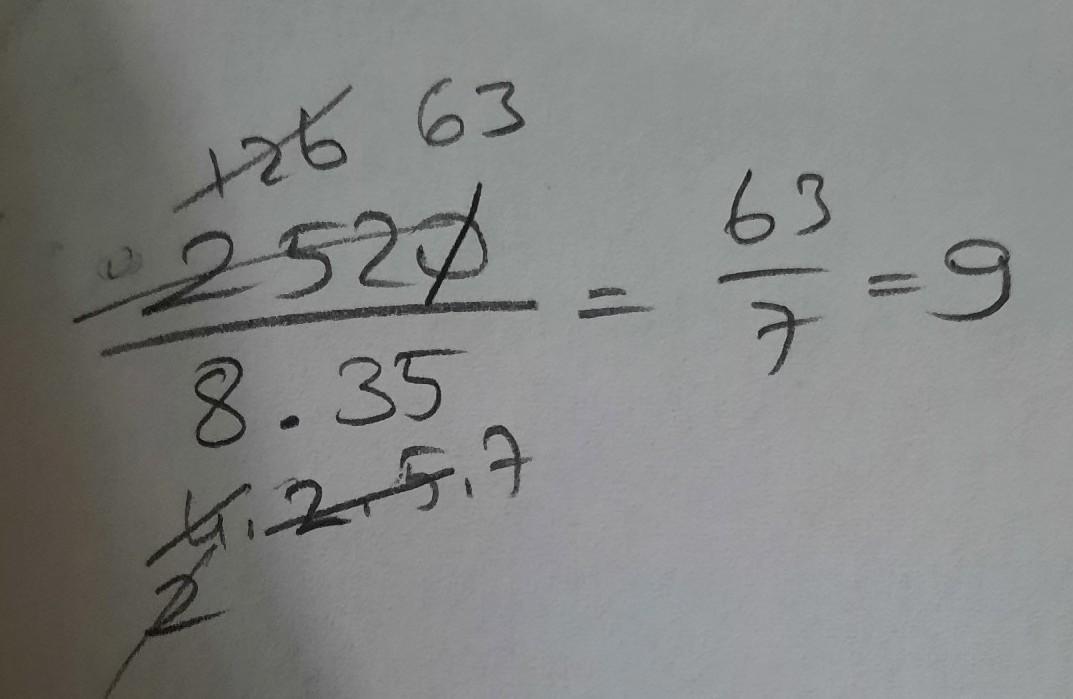 126 63
2520 / 8 . 35 = 63 / 7 = 9
4 . 2 . 5 . 7
2